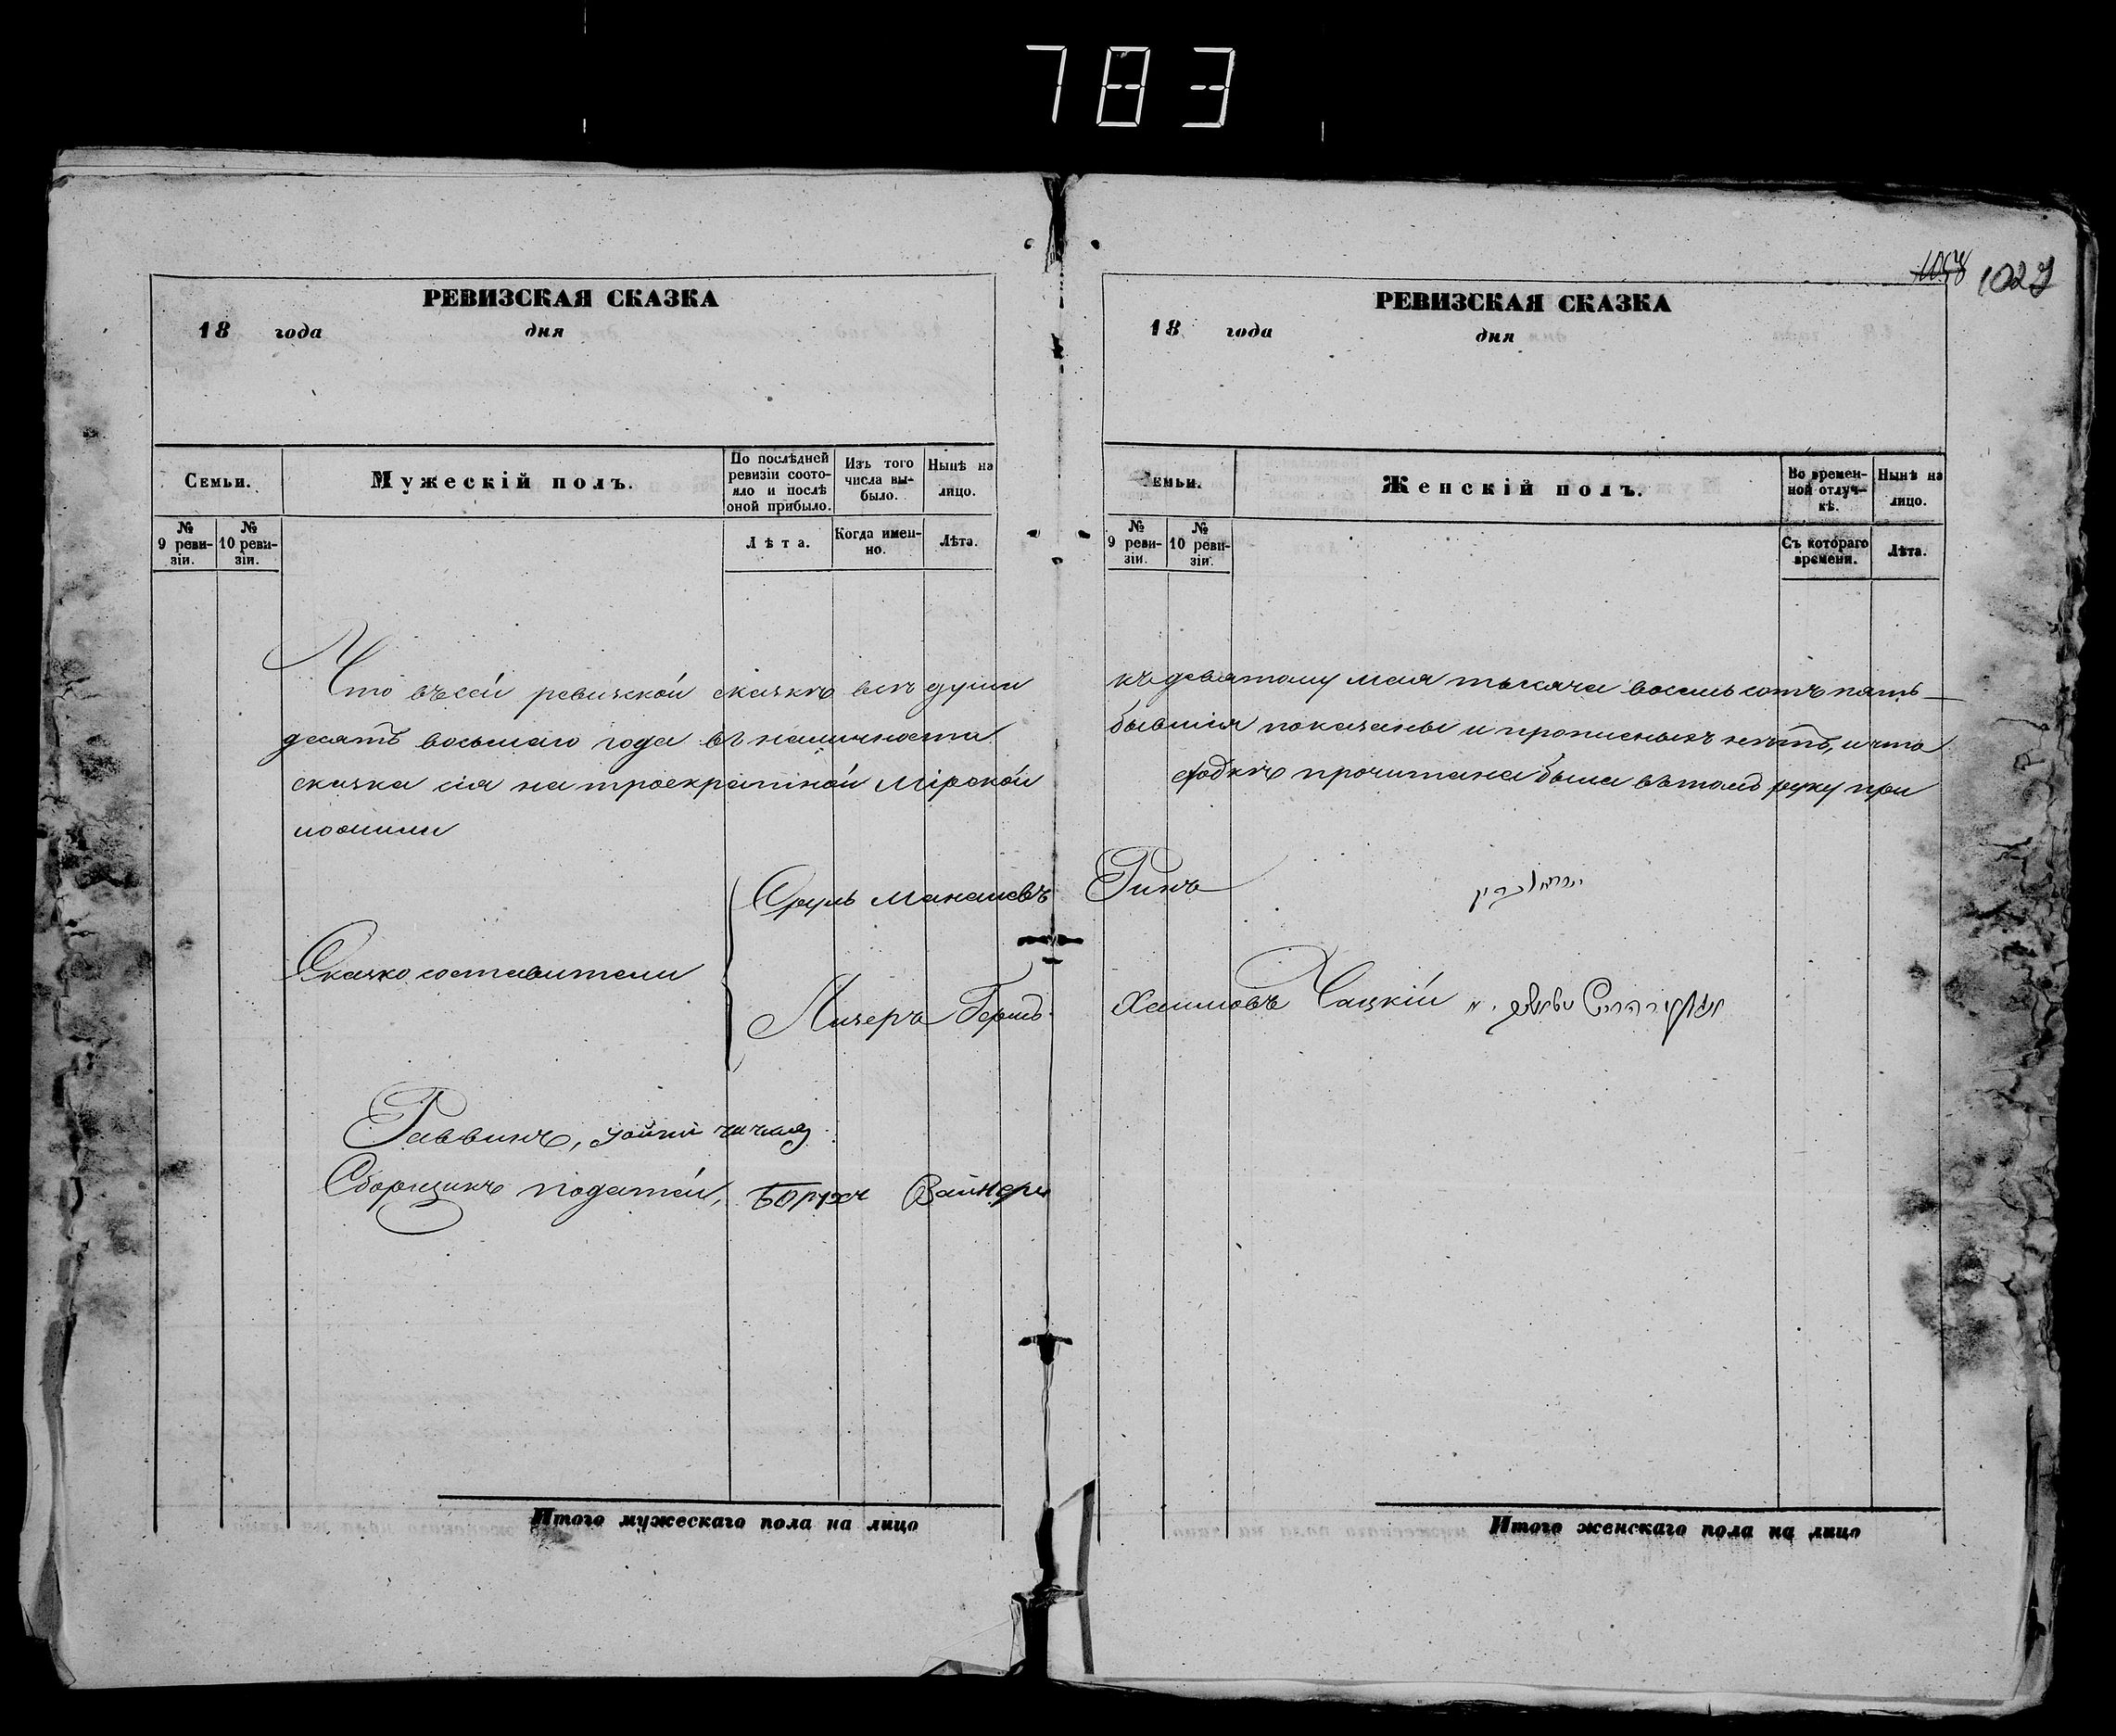 783
1027
РЕВИЗСКАЯ СКАЗКА
18 года дня
Семьи.
Мужескій полъ.
По послѣдней ревизіи состояло и послѣ оной прибыло.
Изъ того числа выбыло.
Нынѣ на лицо.
№ 9 ревизіи.
№ 10 ревизіи.
Лѣта.
Когда именно.
Лѣта.
РЕВИЗСКАЯ СКАЗКА
18 года дня
Семьи.
Женскій полъ.
Во временной отлучкѣ.
Нынѣ на лицо.
№ 9 ревизіи.
№ 10 ревизіи.
Съ котораго времени.
Лѣта.
Что въ сей ревизской сказкѣ всѣ души къ девятому мая тысяча восемь сотъ пять
десятъ восьмаго года въ наличности бывшія показаны и прописныхъ нѣтъ, и что
сказка сія на троекратной мірской сходкѣ прочитана была въ томъ руку при
ложили
Сказкосоставители
Сруль Манашевъ Ринъ
Лизеръ Гершъ Хаимовъ Чацкій
Раввинъ,
Сборщикъ податей, Борухъ Вайнеръ
Итого мужескаго пола на лицо
Итого женскаго пола на лицо